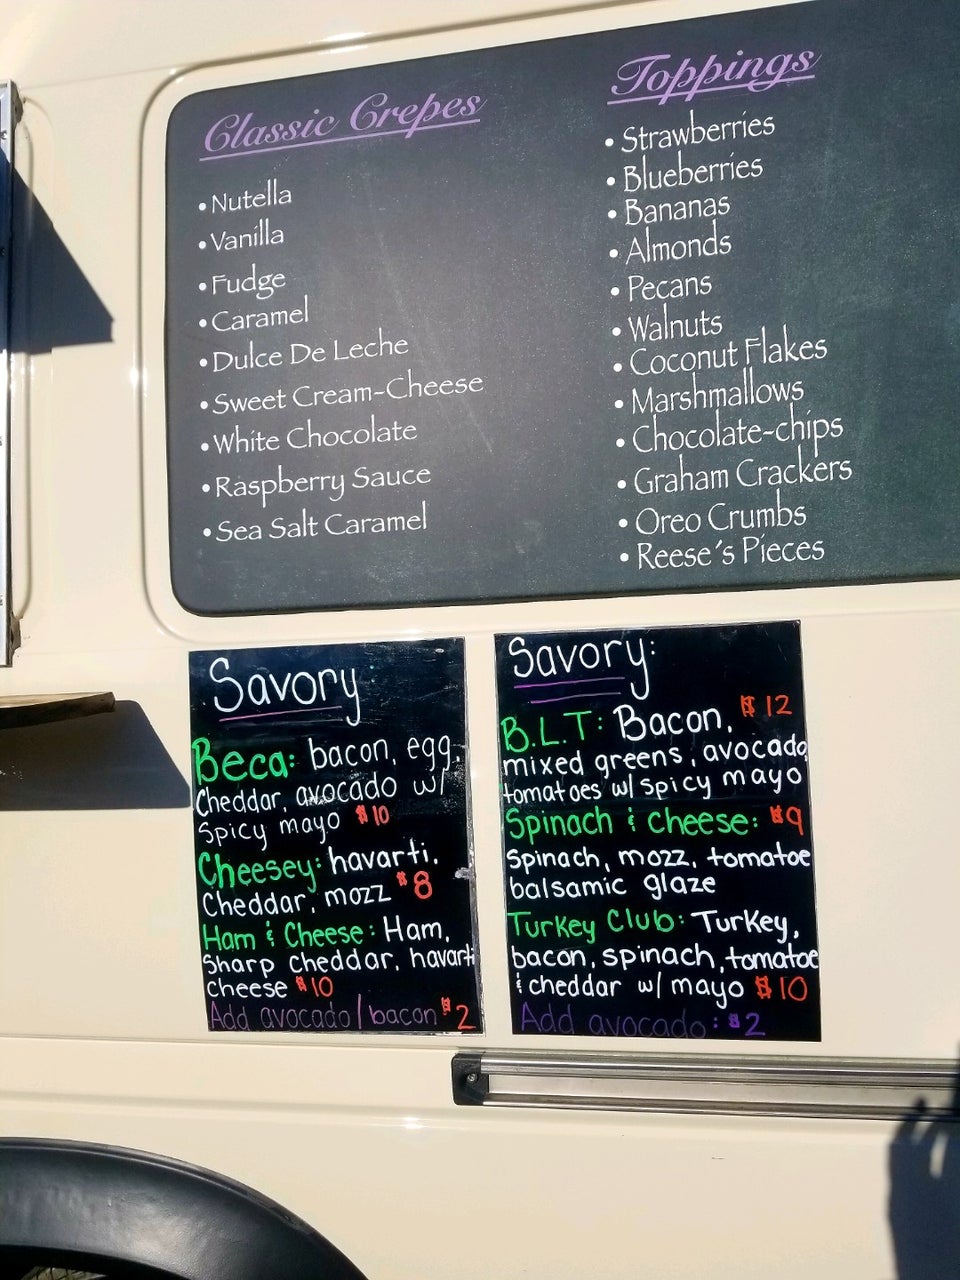 Classic Crepes
• Nutella
• Vanilla
• Fudge
• Caramel
• Dulce De Leche
• Sweet Cream-Cheese
• White Chocolate
• Raspberry Sauce
• Sea Salt Caramel
Toppings
• Strawberries
• Blueberries
• Bananas
• Almonds
• Pecans
• Walnuts
• Coconut Flakes
• Marshmallows
• Chocolate-chips
• Graham Crackers
• Oreo Crumbs
• Reese's Pieces
Savory
Beca: bacon, egg,
Cheddar, avocado w/
Spicy mayo $10
Cheesey: havarti,
Cheddar, mozz $8
Ham & Cheese: Ham,
Sharp cheddar, havarti
cheese $10
Add avocado/bacon $2
Savory:
B.L.T: Bacon, $12
mixed greens, avocado
tomatoes w/ spicy mayo
Spinach & Cheese: $9
Spinach, mozz, tomatoe
balsamic glaze
Turkey Club: Turkey,
bacon, spinach, tomatoe
& cheddar w/ mayo $10
Add avocado: $2